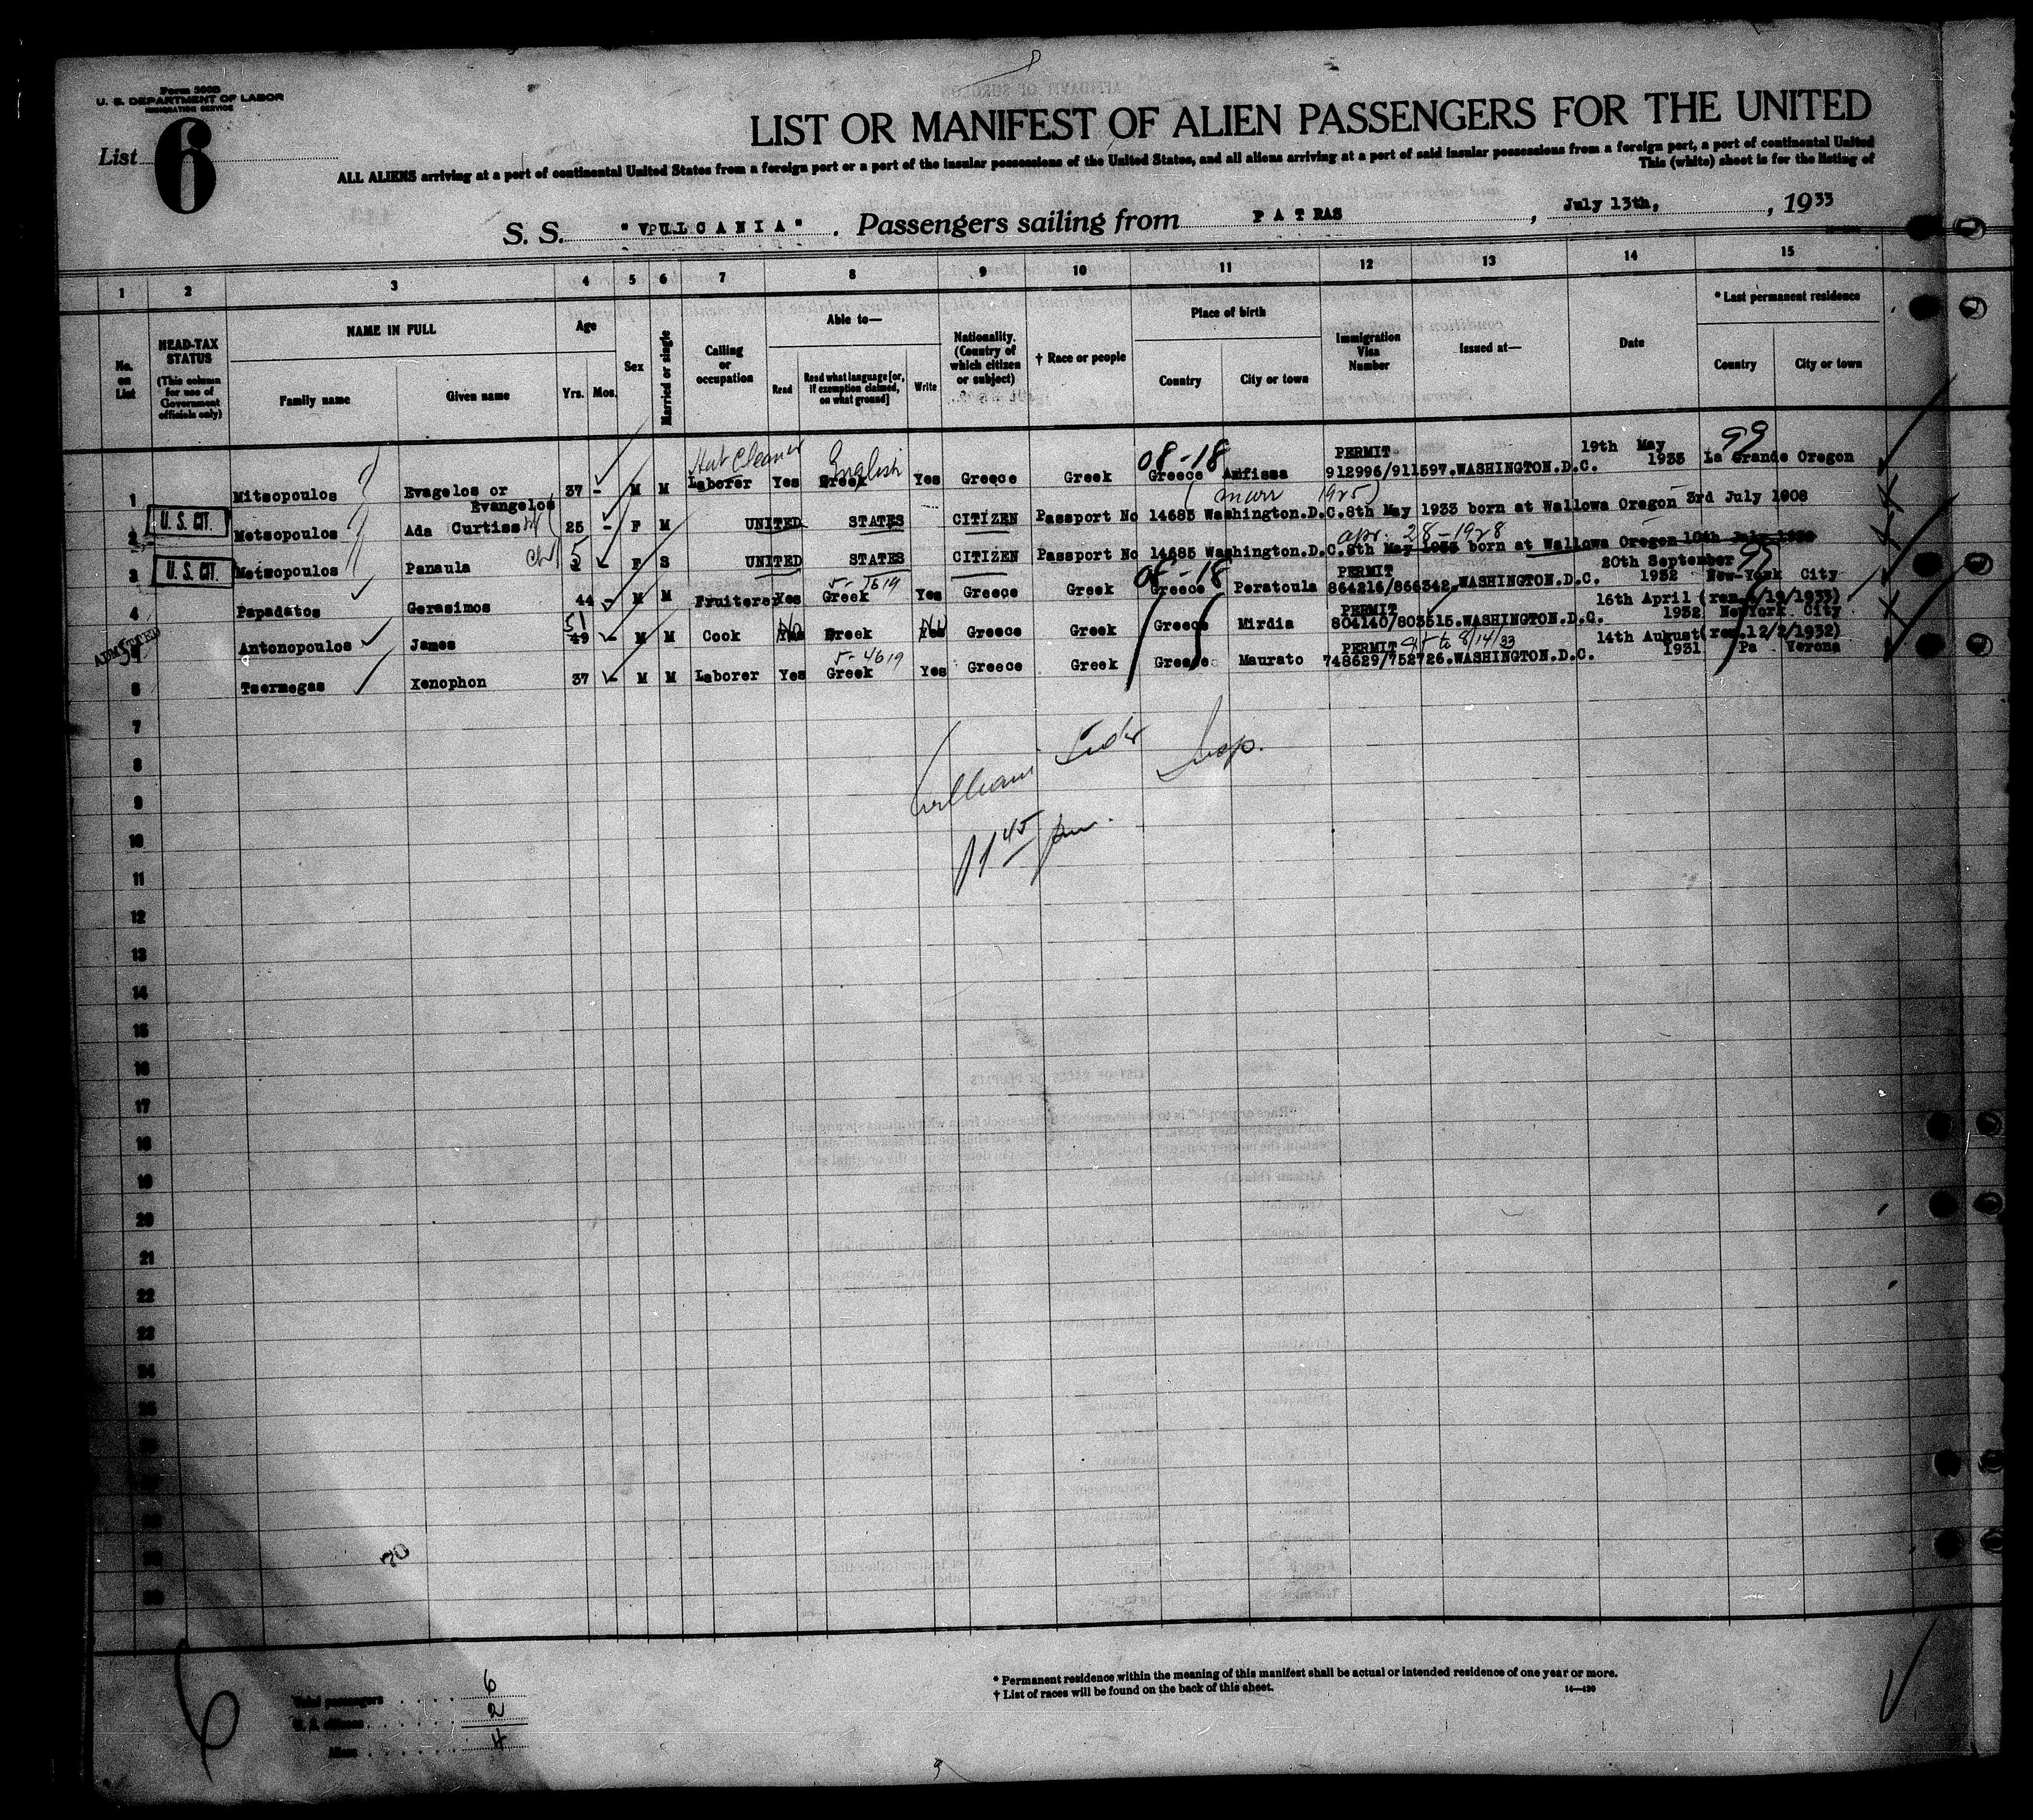 Form 500B
U. S. DEPARTMENT OF LABOR
IMMIGRATION SERVICE
List 6
LIST OR MANIFEST OF ALIEN PASSENGERS FOR THE UNITED
ALL ALIENS arriving at a port of continental United States from a foreign port or a port of the insular possessions of the United States, and all aliens arriving at a port of said insular possessions from a foreign port, a port of continental United
This (white) sheet is for the listing of
S. S. "VULCANIA". Passengers sailing from PATRAS, July 13th, 1933
1 2 3 4 5 6 7 8 9 10 11 12 13 14 15
No. on List
HEAD-TAX STATUS (This column for use of Government officials only)
NAME IN FULL
Family name Given name
Age
Yrs. Mos.
Sex
Married or single
Calling or occupation
Able to—
Read Read what language [or, if exemption claimed, on what ground] Write
Nationality. (Country of which citizen or subject)
† Race or people
Place of birth
Country City or town
Immigration Visa Number
Issued at—
Date
* Last permanent residence
Country City or town
Hat Cleaner English 08-18 PERMIT 19th May 99
1 Mitsopoulos Evagelos or Evangelos 37 - M M Laborer Yes Greek Yes Greece Greek Greece Amfissa 912996/911597.WASHINGTON.D.C. 1933 La Grande Oregon
(marr 1925)
2 U. S. CIT. Metsopoulos Ada Curtiss 25 - F M UNITED STATES CITIZEN Passport No 14685 Washington.D.C.8th May 1933 born at Wallowa Oregon 3rd July 1908
apr. 28-1928
3 U. S. CIT. Metsopoulos Panaula 5 F S UNITED STATES CITIZEN Passport No 14685 Washington.D.C.8th May 1933 born at Wallowa Oregon 10th July
08-18 PERMIT 20th September 99
4 Papadatos Gerasimos 44 - M M Fruiterer Yes Greek Yes Greece Greek Greece Peratoula 864216/866342.WASHINGTON.D.C. 1932 New-York City
51 PERMIT 16th April
ADMITTED Antonopoulos James 49 - M M Cook No Greek No Greece Greek Greece Mirdia 804140/803515.WASHINGTON.D.C. 1932 New York City
PERMIT 8/14/33 14th August (ren.12/2/1932)
6 Tsermegas Xenophon 37 - M M Laborer Yes Greek Yes Greece Greek Greece Maurato 748629/752726.WASHINGTON.D.C. 1931 Pa Verona
7
8
William Insp.
9
10
11 45 pm.
11
12
13
14
15
16
17
18
19
20
21
22
23
24
* Permanent residence within the meaning of this manifest shall be actual or intended residence of one year or more.
† List of races will be found on the back of this sheet.
14—430
Total passengers 6
U. S. citizens 2
Aliens 4
6